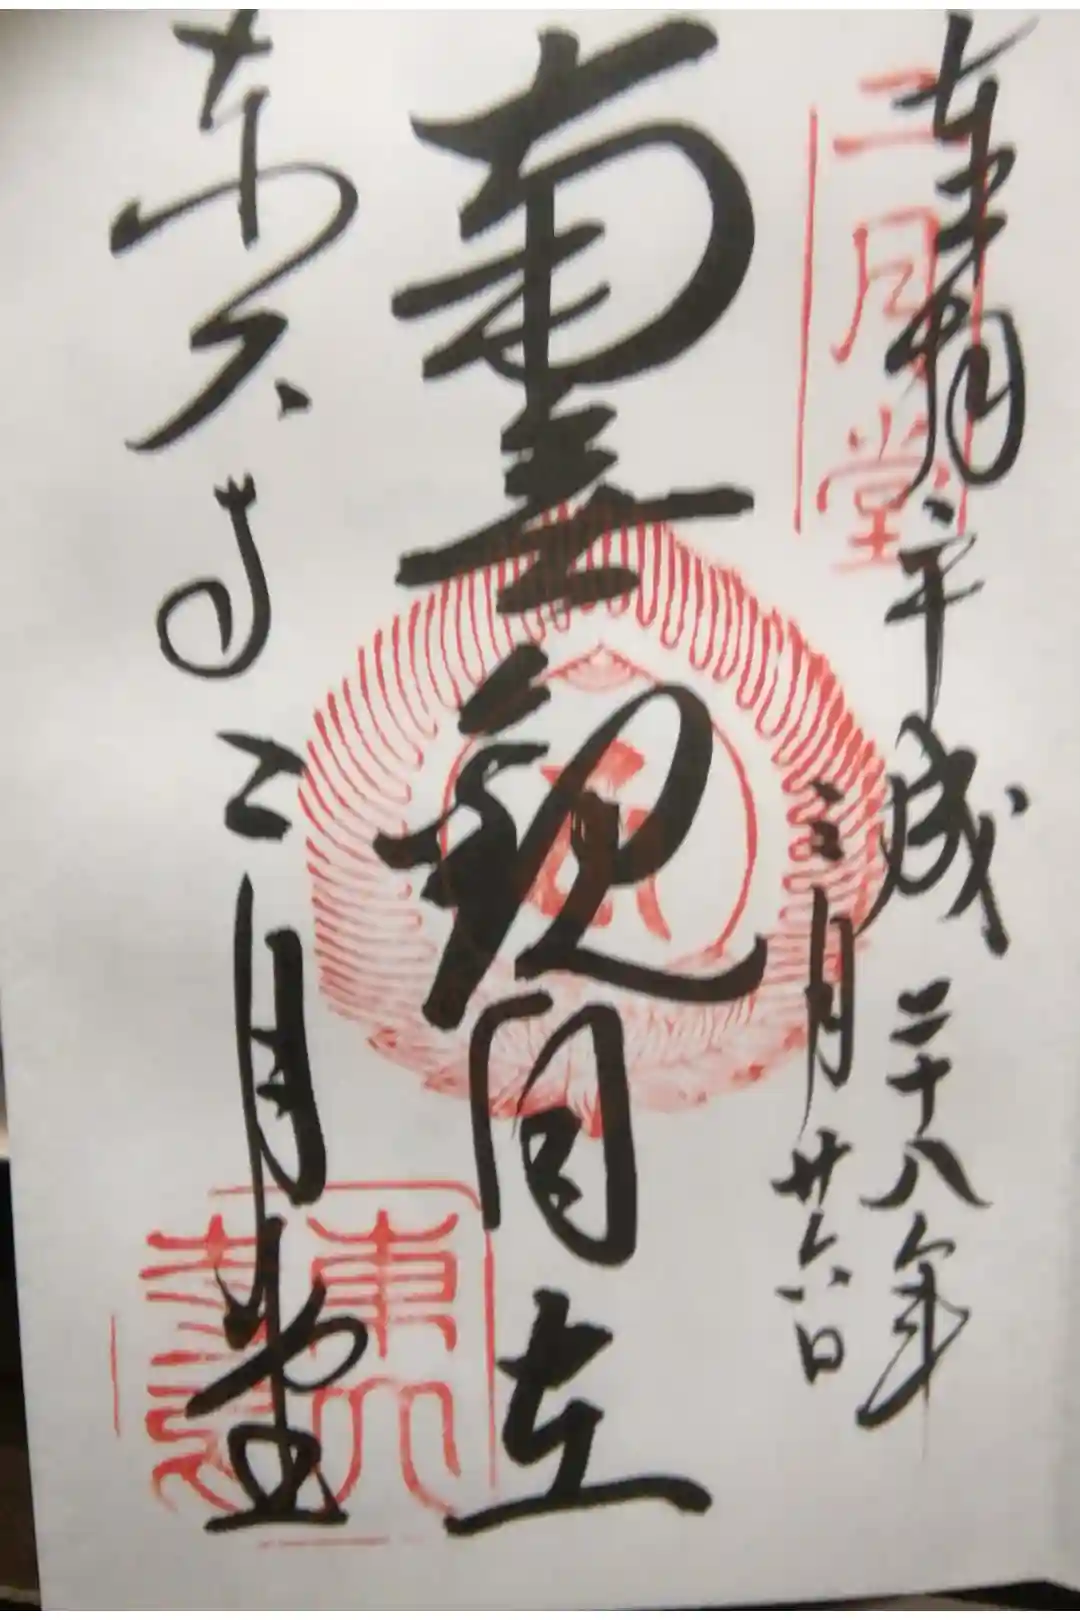 奉拝
二月堂
平成二十八年
三月廿六日
南無観自在
東大寺
二月堂
東大